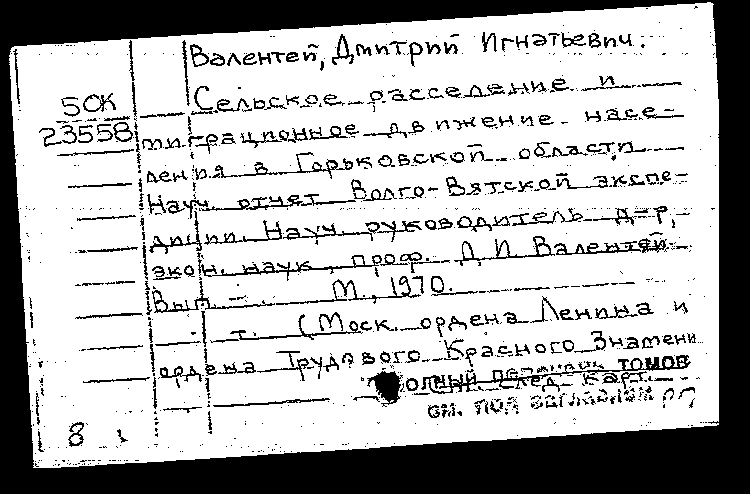 Валентей, Дмитрий Игнатьевич.
50К
23558
Сельское расселение и
миграционное движение насе-
ления в Горьковской области
Науч. отчет Волго-Вятской экспе-
диции. Науч. руководитель д-р,
экон. наук, проф. Д И Валентей
Вып. - . М., 1970.
- т. (Моск. ордена Ленина и
ордена Трудового Красного Знамени
См. след. карт.
полный перечень томов
см. под заглавием
8